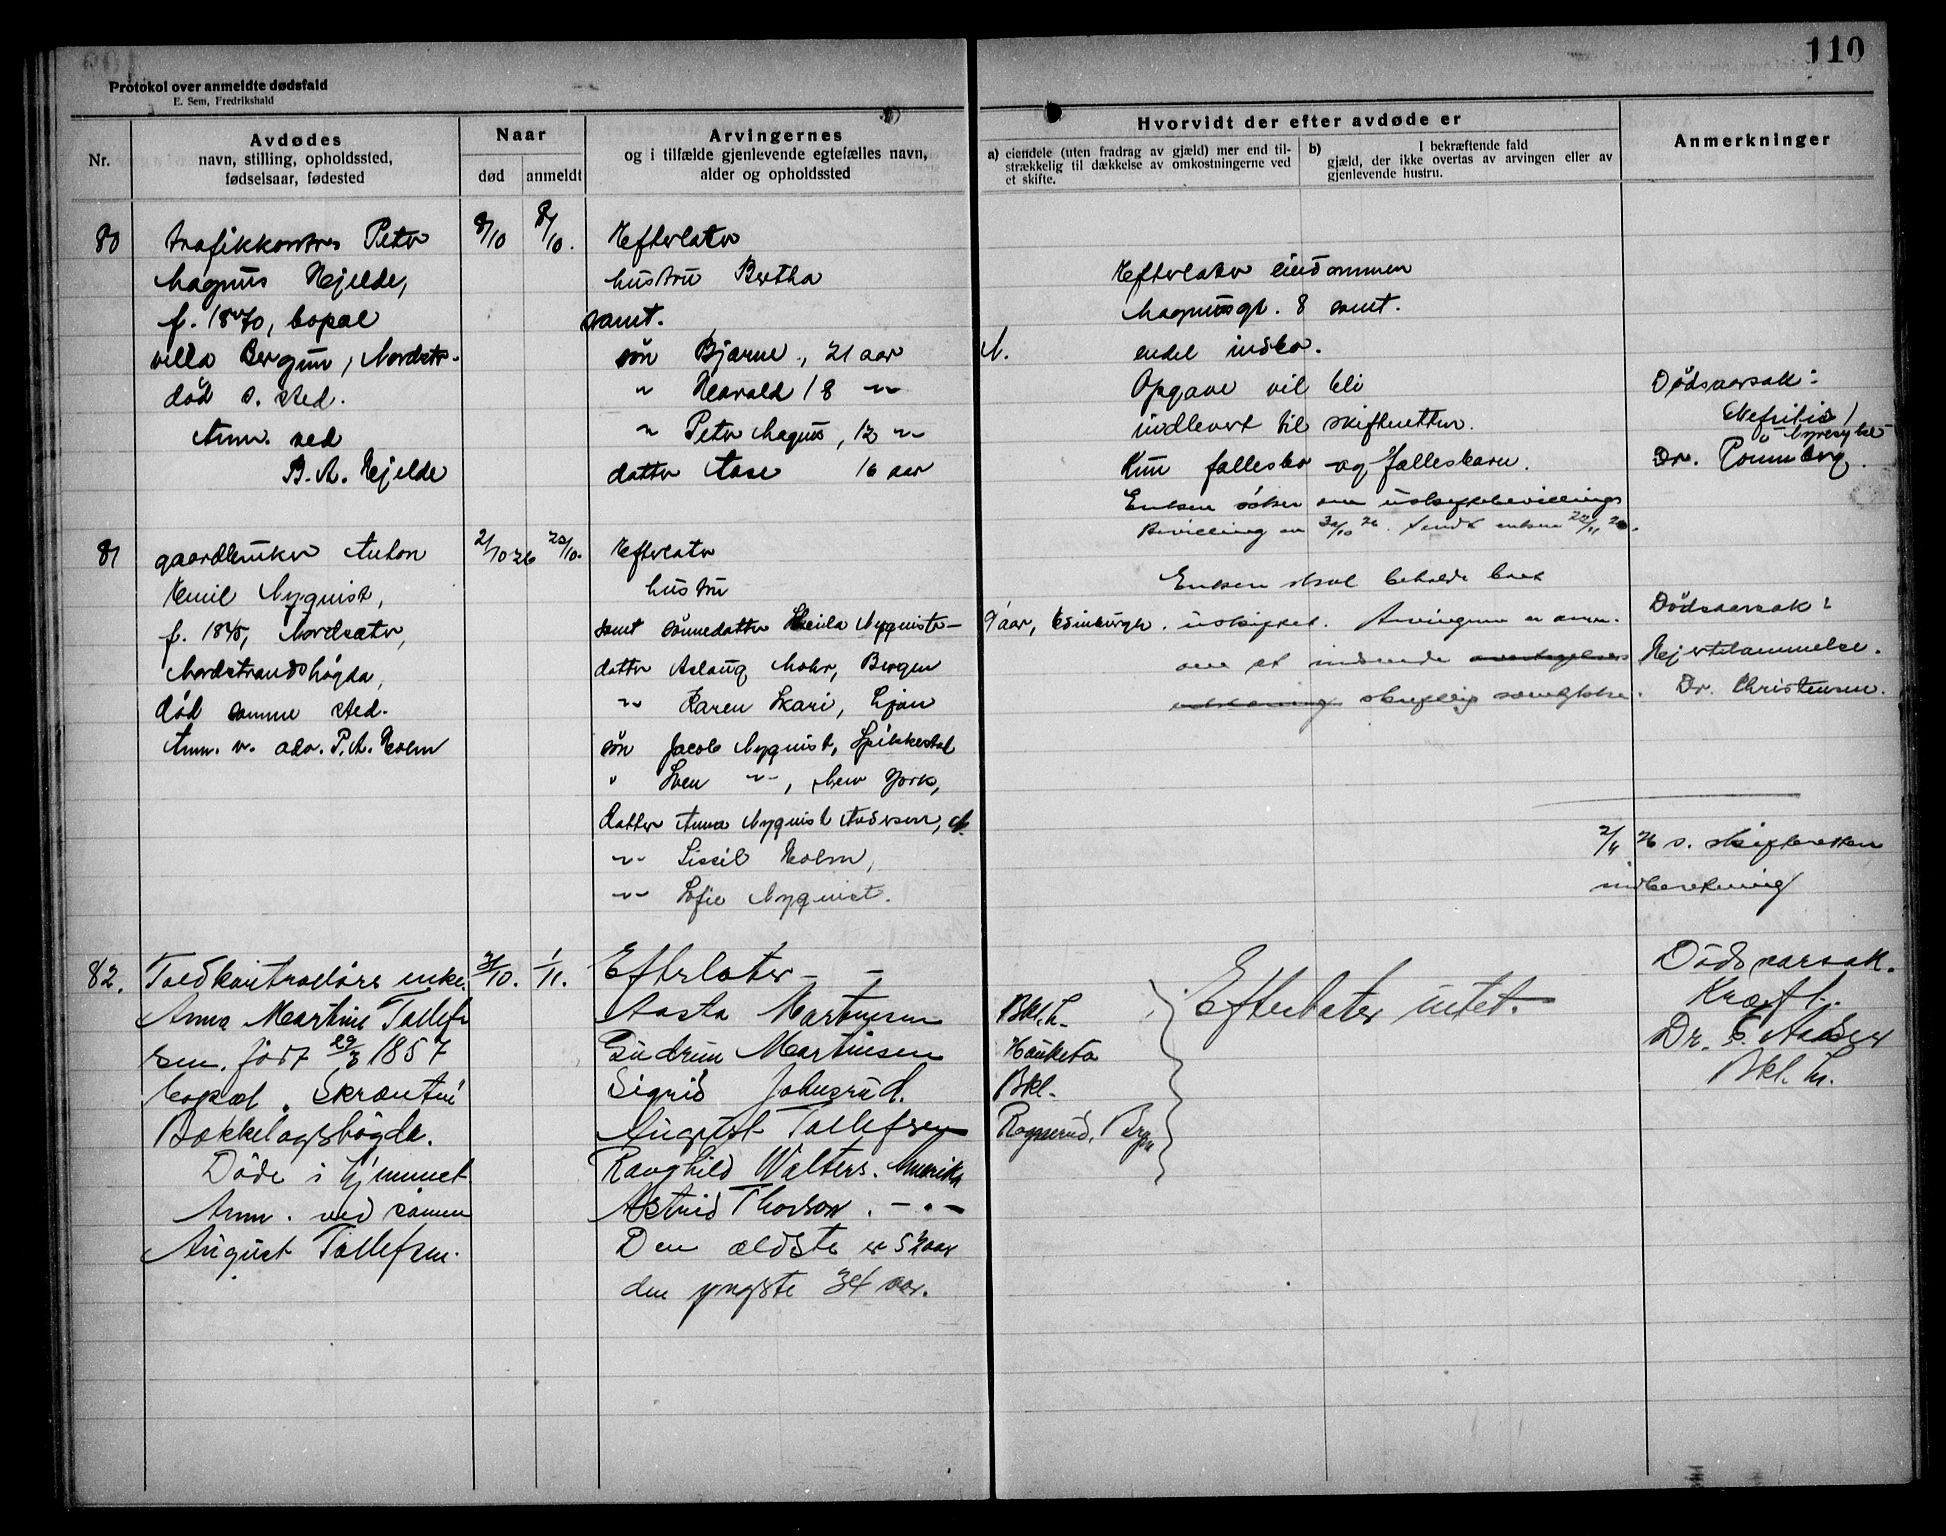 110
Protokol over anmeldte dødsfald
E. Sem, Fredrikshald
Nr.
Avdødes
navn, stilling, opholdssted,
fødselsaar, fødested
Naar
død anmeldt
Arvingernes
og i tilfælde gjenlevende egtefælles navn,
alder og opholdssted
Hvorvidt der efter avdøde er
a) eiendele (uten fradrag av gjæld) mer end til-
strækkelig til dækkelse av omkostningerne ved
et skifte.
b) I bekræftende fald
gjæld, der ikke overtas av arvingen eller av
gjenlevende hustru.
Anmerkninger
80
Peter
Magnus Hjelde,
f. 1870, bopæl
villa Bergum, Nordstr.
død s. sted.
Anm. ved
B. A. Hjelde
8/10
8/10.
Efterlater
hustru Bertha
samt.
søn Bjarne, 21 aar
" Harald 18 "
" Peter Magnus, 12 "
datter Aase 16 aar
N.
Efterlater eiendommen
Magnusgt. 8 samt.
endel indbo.
Opgave vil bli
indlevert til skifteretten.
Kun fællesbo og fællesbarn.
Enken søker om uskiftebevilling
Bevilling av 30/10 26. Sendt enken
Dødsaarsak:
Nefritis
Dr.
81
gaardbruker Anton
Emil Nyquist,
Nordsæter,
Nordstrandshøgda,
død samme sted.
Anm. v. adv. P. A. Holm
21/10 26
Efterlater
hustru
samt sønnedatter Nyquist
9 aar, Edinburgh.
datter Aslaug Mohr, Bergen
" Karen Skari, Ljan
søn Jacob Nyquist, Spikkestad
" Sven ", New York,
datter Anna Nyquist Andersen, N.
" Sissil Holm,
" Sofie Nyquist.
Enken skal beholde boet
uskiftet. Arvingerne er anm.
om at indsende
skriftlig samtykke.
Dødsaarsak:
Hjertelammelse.
Dr. Christensen.
26 s. skifteretten
indberetning
82.
Toldkontrollørs enke
Anna Martine Tollef
sen. født 29/3 1857
bopæl. Skrænten
Bækkelagshøgda.
Døde i hjemmet
Anm. ved sønnen
August Tollefsen.
31/10.
1/11.
Efterlater
Aasta Martinsen Bkl.h.
Gudrun Martinsen Hauketo
Sigrid Johnsrud. Bkl.
August Tollefsen
Ragnhild Walters. Amerika
Astrid Thorson. - " -
Den ældste er 52 aar
den yngste 34 aar.
Efterlater intet.
Dødsaarsak.
Kræft.
Dr.
Bkl. h.